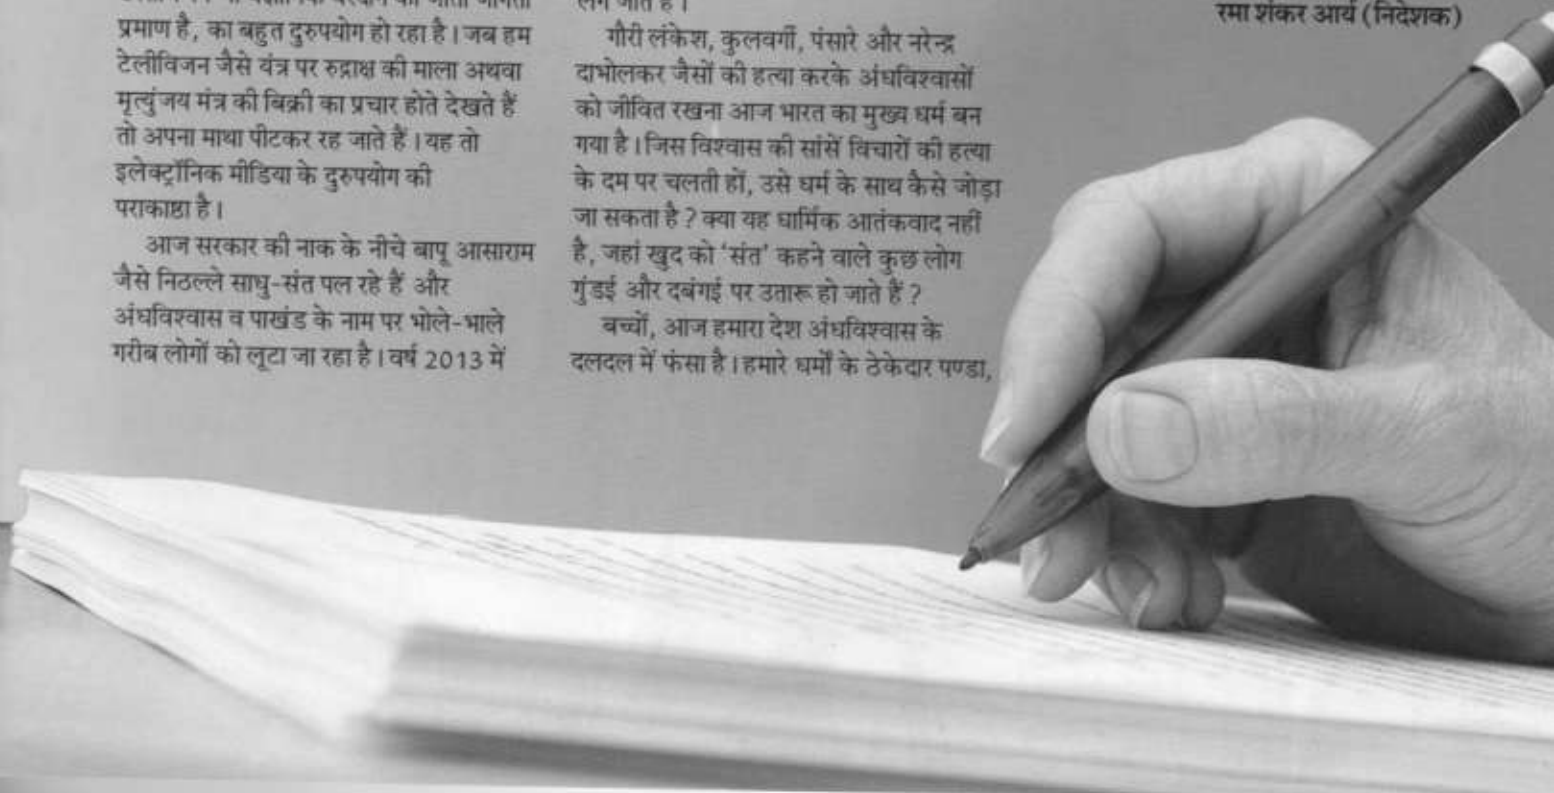 प्रमाण है, का बहुत दुरुपयोग हो रहा है। जब हम
टेलीविजन जैसे यंत्र पर रुद्राक्ष की माला अथवा
मृत्युंजय मंत्र की बिक्री का प्रचार होते देखते हैं
तो अपना माथा पीटकर रह जाते हैं। यह तो
इलेक्ट्रॉनिक मीडिया के दुरुपयोग की
पराकाष्ठा है।
आज सरकार की नाक के नीचे बापू आसाराम
जैसे निठल्ले साधु-संत पल रहे हैं और
अंधविश्वास व पाखंड के नाम पर भोले-भाले
गरीब लोगों को लूटा जा रहा है। वर्ष 2013 में
लग जाते हैं।
गौरी लंकेश, कुलवर्गी, पंसारे और नरेन्द्र
दाभोलकर जैसों की हत्या करके अंधविश्वासों
को जीवित रखना आज भारत का मुख्य धर्म बन
गया है। जिस विश्वास की सांसें विचारों की हत्या
के दम पर चलती हों, उसे धर्म के साथ कैसे जोड़ा
जा सकता है? क्या यह धार्मिक आतंकवाद नहीं
है, जहां खुद को 'संत' कहने वाले कुछ लोग
गुंडई और दबंगई पर उतारू हो जाते हैं?
बच्चों, आज हमारा देश अंधविश्वास के
दलदल में फंसा है। हमारे धर्मों के ठेकेदार पण्डा,
रमा शंकर आर्य (निदेशक)